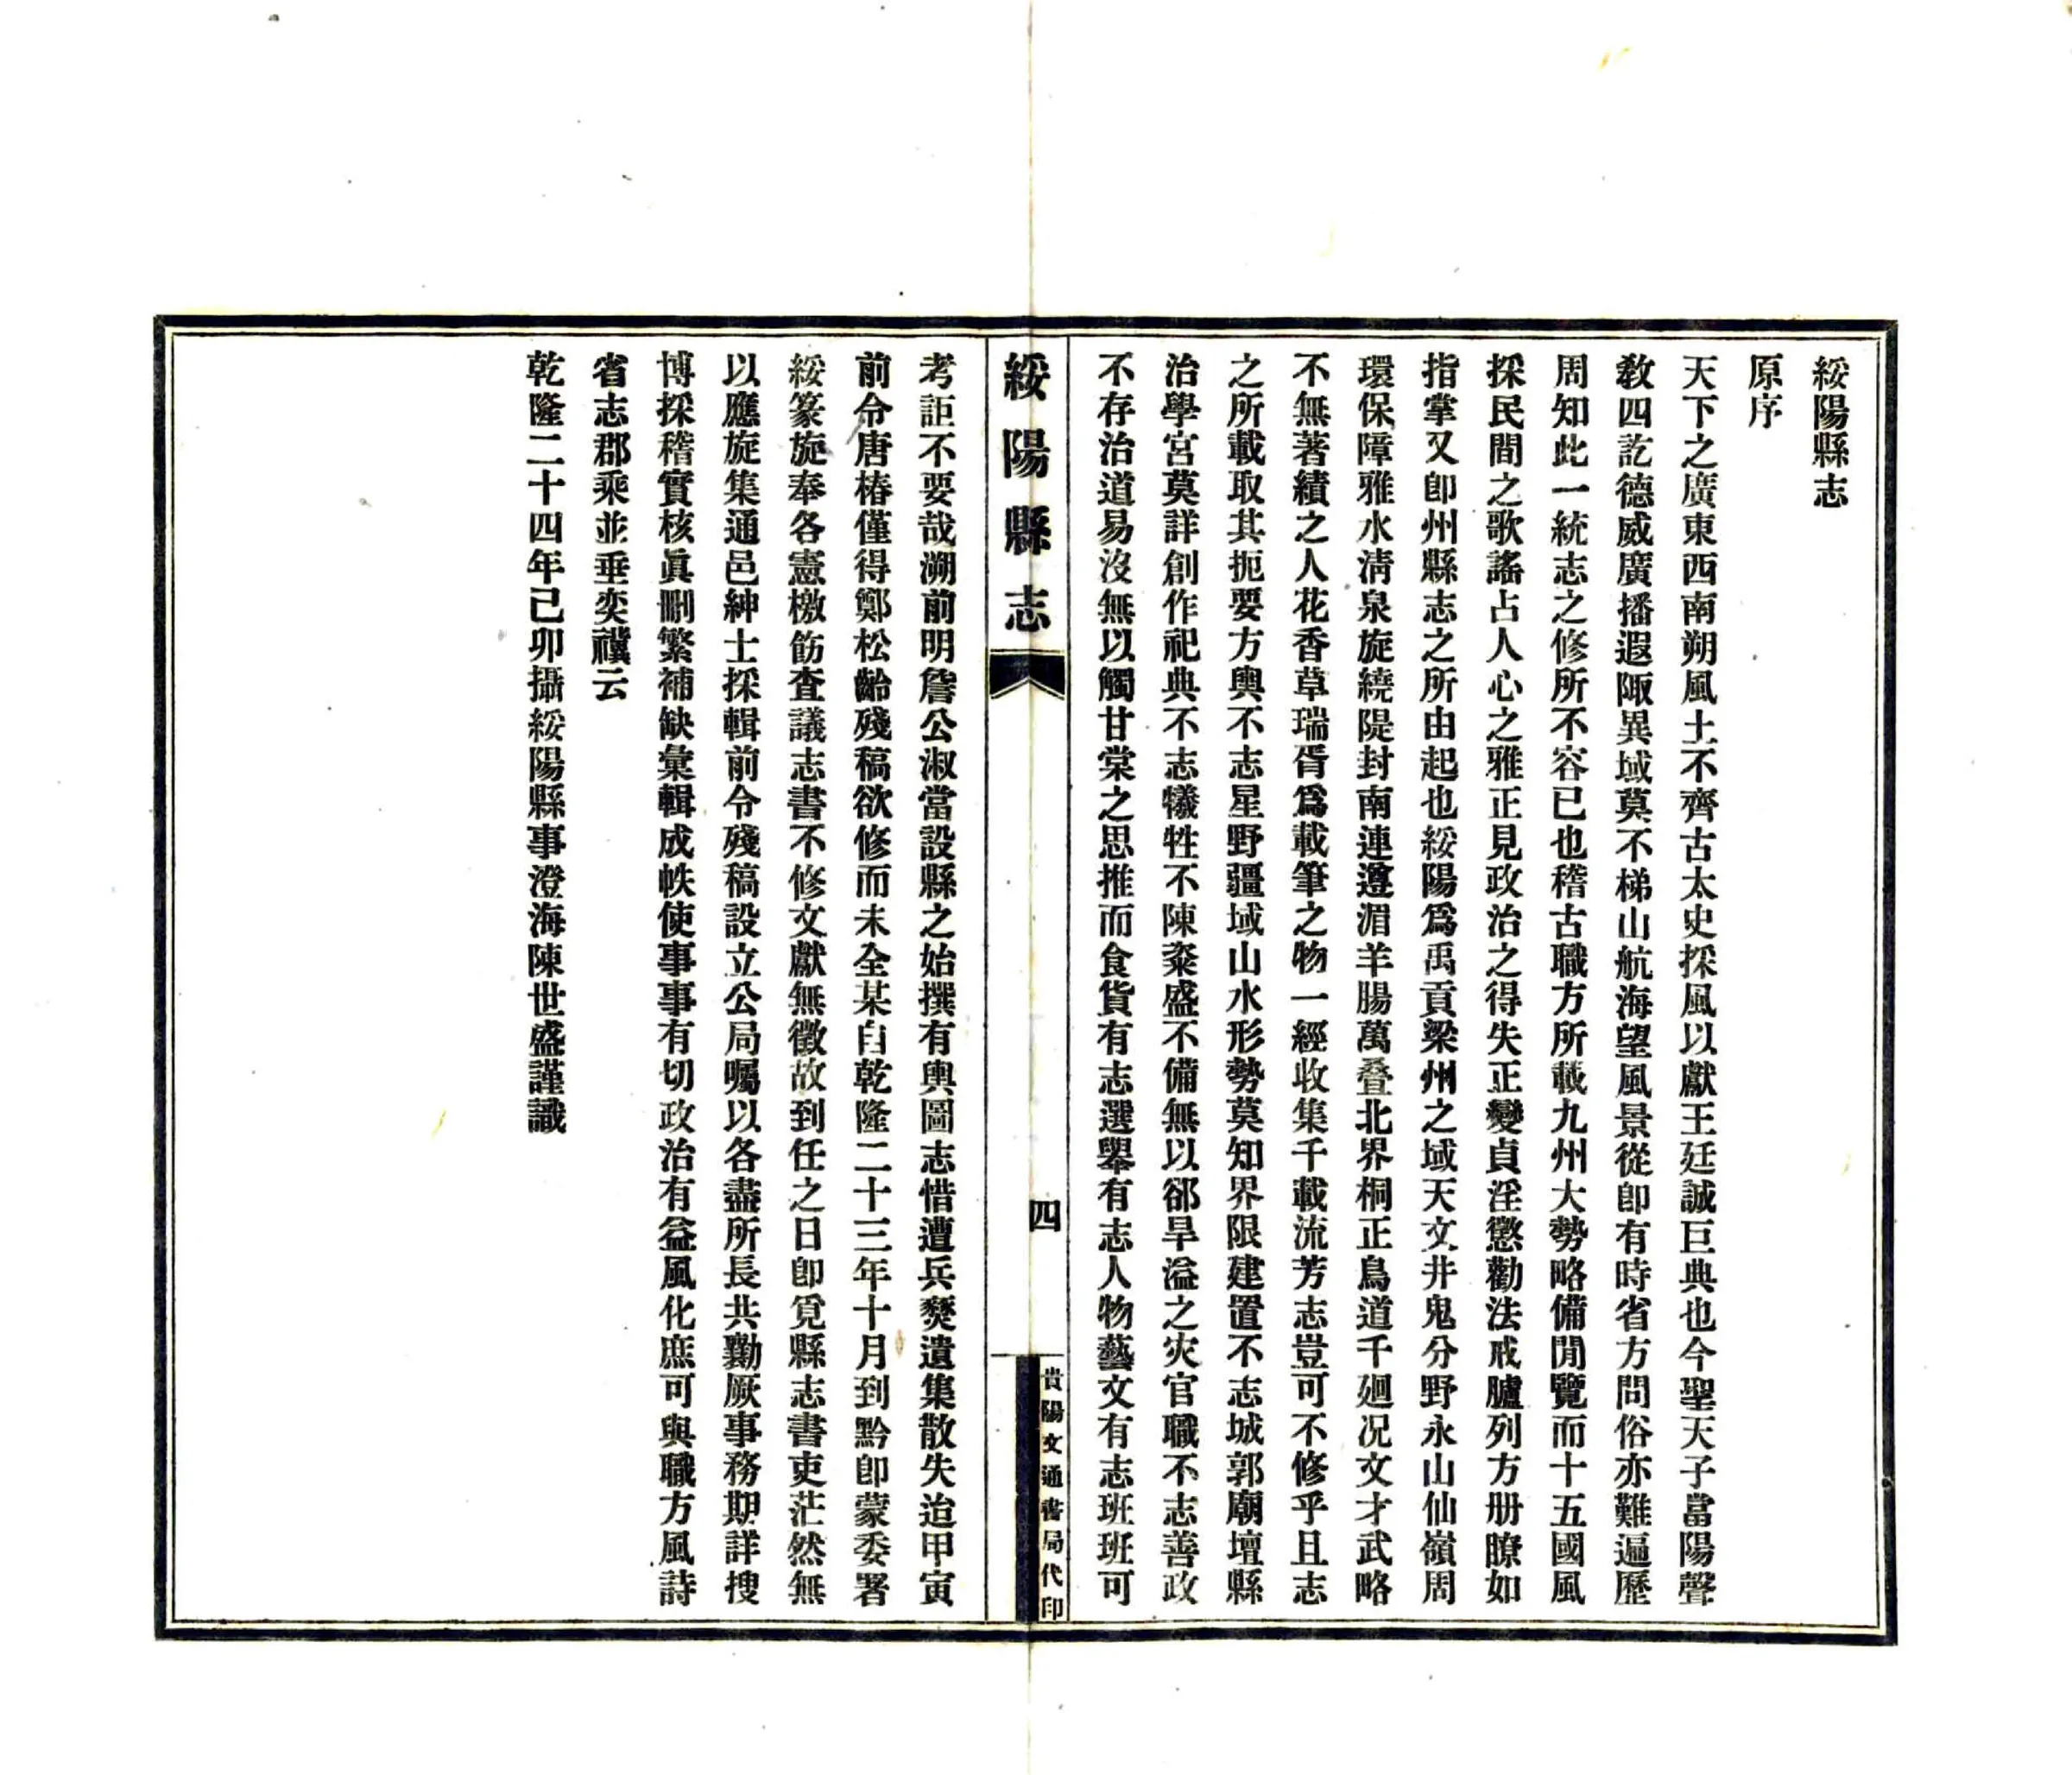 綏陽縣志
原序
天下之廣東西南朔風土不齊古太史採風以獻王廷誠巨典也今聖天子當陽聲
敎四訖德威廣播遐陬異域莫不梯山航海望風景從卽有時省方問俗亦難遍歷
周知此一統志之修所不容已也稽古職方所載九州大勢略備閒覽而十五國風
採民間之歌謠占人心之雅正見政治之得失正變貞淫懲勸法戒臚列方册瞭如
指掌又卽州縣志之所由起也綏陽爲禹貢梁州之域天文井鬼分野永山仙嶺周
環保障雅水淸泉旋繞隄封南連遵湄羊腸萬叠北界桐正鳥道千廻况文才武略
不無著績之人花香草瑞胥爲載筆之物一經收集千載流芳志豈可不修乎且志
之所載取其扼要方輿不志星野疆域山水形勢莫知界限建置不志城郭廟壇縣
治學宮莫詳創作祀典不志犧牲不陳粢盛不備無以郤旱溢之灾官職不志善政
不存治道易沒無以觸甘棠之思推而食貨有志選舉有志人物藝文有志班班可
綏陽縣志
四
貴陽文通書局代印
考詎不要哉溯前明詹公淑當設縣之始撰有輿圖志惜遭兵燹遺集散失迨甲寅
前令唐椿僅得鄭松齡殘稿欲修而未全某自乾隆二十三年十月到黔卽蒙委署
綏篆旋奉各憲檄飭查議志書不修文獻無徵故到任之日卽覓縣志書吏茫然無
以應旋集通邑紳士採輯前令殘稿設立公局囑以各盡所長共勷厥事務期詳搜
博採稽實核眞刪繁補缺彙輯成帙使事事有切政治有益風化庶可與職方風詩
省志郡乘並垂奕禩云
乾隆二十四年己卯攝綏陽縣事澄海陳世盛謹識